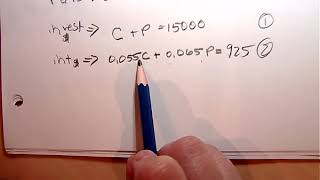 invest $ => C + P = 15000 ①
int $ => 0.055C + 0.065P = 925 ②